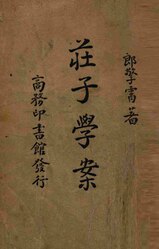 郎擎霄著
莊子學案
商務印書館發行